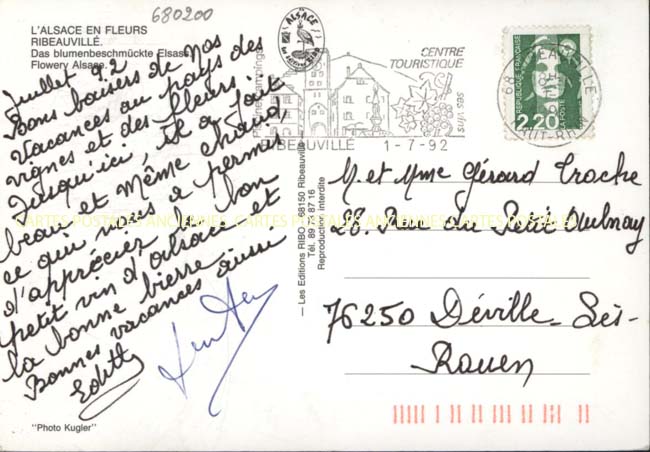 680200
L'ALSACE EN FLEURS
RIBEAUVILLÉ.
Das blumenbeschmückte Elsass.
Flowery Alsace.
Juillet 92
Bons baisers de nos
vacances au pays des
vignes et des fleurs.
Jusqu'ici, il a fait
beau et même chaud,
ce qui nous a permis
d'apprécier le bon
petit vin d'alsace et
la bonne bierre.
Bonnes vacances aussi
Edith
"Photo Kugler"
ALSACE
CENTRE
TOURISTIQUE
ses vins
RIBEAUVILLÉ 1-7-92
RÉPUBLIQUE FRANÇAISE
LA POSTE
2,20
68
HAUT-RHIN
— Les Editions RIBO - 68150 Ribeauvillé
Tél. 89 73 87 16
Reproduction interdite
M. et Mme Gérard Troche
28. Rue du Petit Aulnay
76250 Déville-Lès-
Rouen
CARTES POSTALES ANCIENNES CARTES POSTALES ANCIENNES CARTES POSTALES